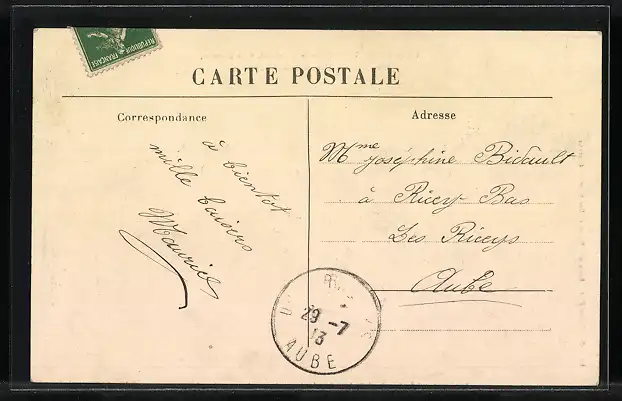 REPUBLIQUE FRANCAISE
CARTE POSTALE
Correspondance
à bientot
mille baisers
Maurice
Adresse
Mme Joséphine Bidault
à Ricey Bas
Les Riceys
Aube
29 -7
13
AUBE